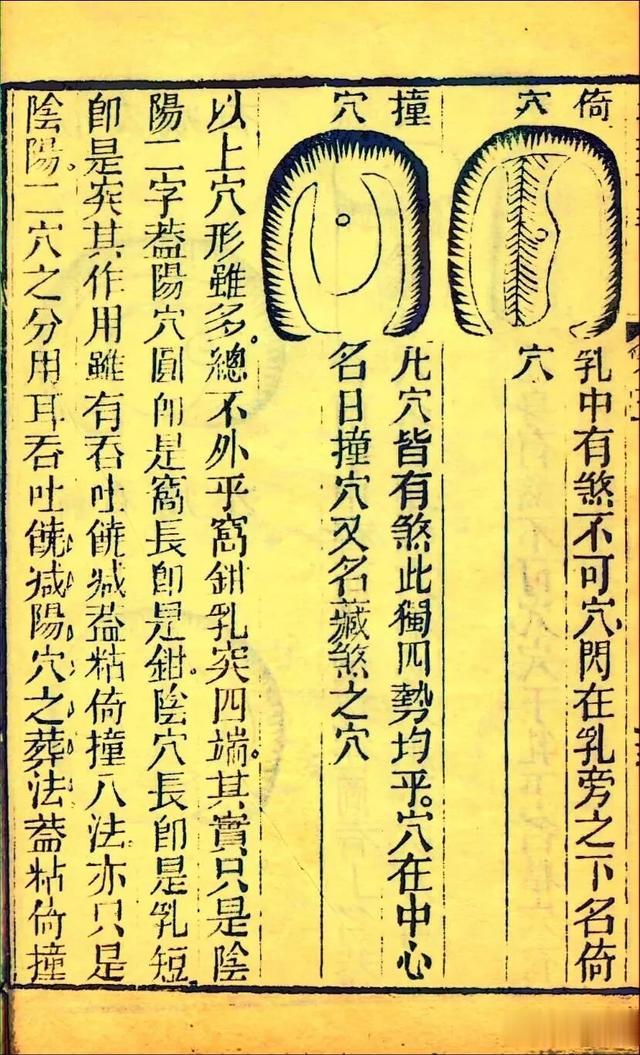 倚穴
乳中有煞不可穴閃在乳旁之下名倚
穴
撞穴
凢穴皆有煞此獨四勢均平。穴在中心
名曰撞穴又名藏煞之穴
以上穴形雖多。總不外乎窩鉗乳突四端。其實只是陰
陽二字葢陽穴圓卽是窩長卽是鉗陰穴長卽是乳短
卽是突其作用雖有吞吐饒减葢粘倚撞八法亦只是
陰陽二穴之分用耳吞吐饒减陽穴之葬法葢粘倚撞